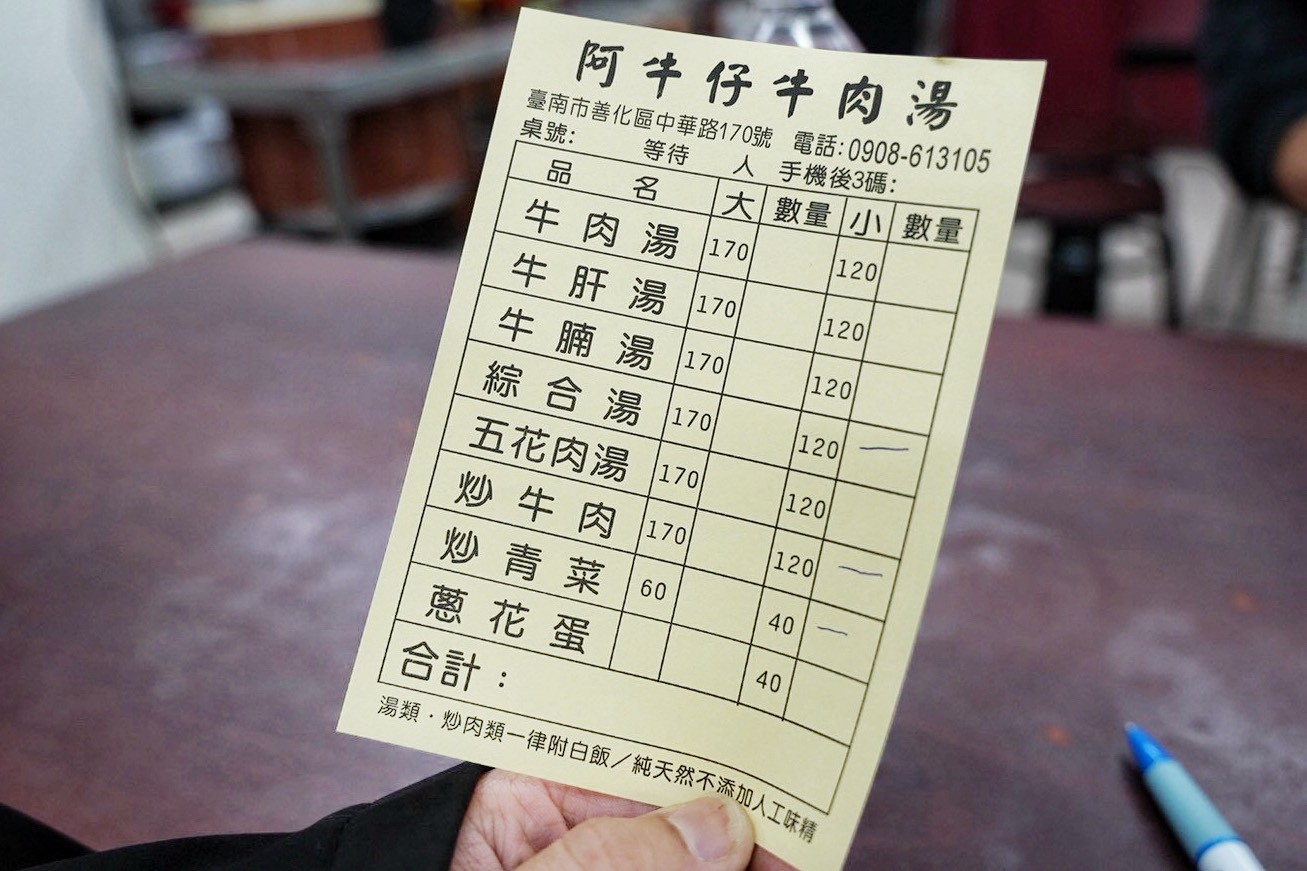 阿牛仔牛肉湯
臺南市善化區中華路170號 電話:0908-613105
桌號: 等待 人 手機後3碼:
品名 大 數量 小 數量
牛肉湯 170 120
牛肝湯 170 120
牛腩湯 170 120
綜合湯 170 120 一
五花肉湯 170 120
炒牛肉 170 120 一
炒青菜 60 40 一
蔥花蛋 40
合計:
湯類・炒肉類一律附白飯/純天然不添加人工味精